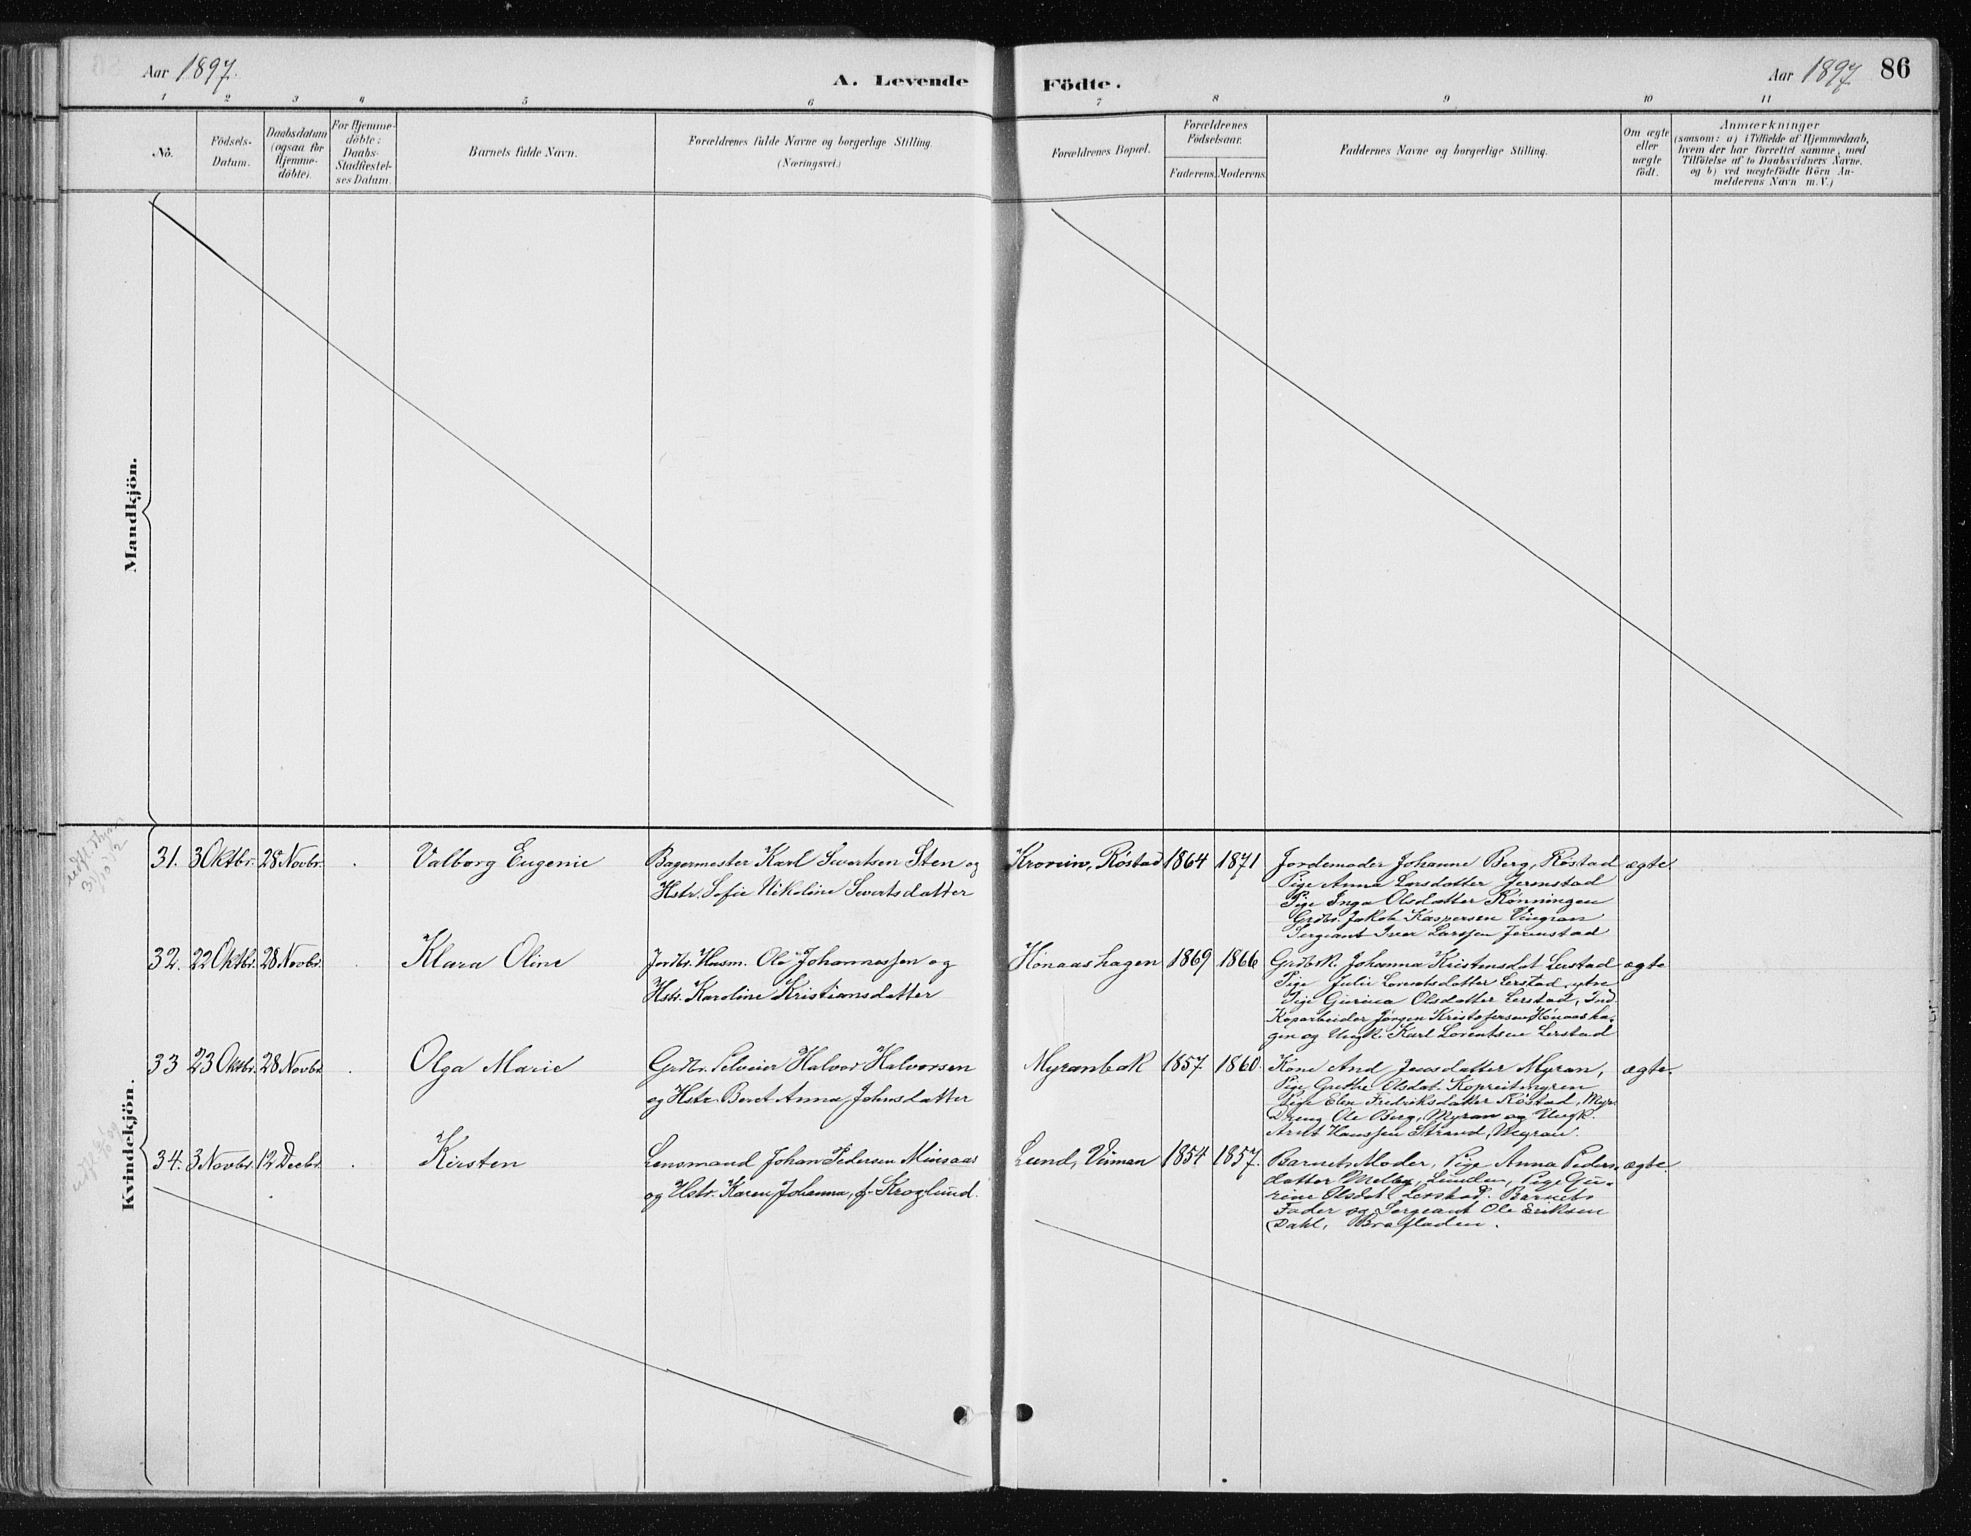 Aar 1897.
A. Levende Födte.
Aar 1897.
86
1 2 3 4 5 6 7 8 9 10 11
Nô.
Födsels-
Datum.
Daabsdatum
(ogsaa for
Hjemme-
döbte).
For Hjemme-
döbte:
Daabs-
Stadfestel-
ses Datum.
Barnets fulde Navn.
Forældrenes fulde Navne og borgerlige Stilling.
(Næringsvei.)
Forældrenes Bopæl.
Forældrenes
Födselsaar.
Faderens. Moderens.
Faddernes Navne og borgerlige Stilling.
Om ægte
eller
uægte
födt.
Anmærkninger
(saasom: a) i Tilfælde af Hjemmedaab,
hvem der har forrettet samme, med
Tilföielse af to Daabsvidners Navne.
og b) ved uægtefödte Börn An-
melderens Navn m.V.)
Mandkjön.
Kvindekjön.
31. 3 Oktbr. 28 Novbr. Valborg Eugenie
Bagermester Karl Sivertsen Sten og
Hstr. Sofie Nikoline Sivertsdatter
Røstad 1864 1871
Jordemoder Johanne Berg, Røstad
Pige Anna Larsdatter Jermstad
Pige Inga Olsdatter Rønningen
Grdbr. Jakob Kaspersen Vingran
Sergeant Iver Larssen Jermstad
ægte.
32. 22 Oktbr. 28 Novbr. Klara Oline
Jordbr. Husm. Ole Johannessen og
Hstr. Karoline Kristiansdatter
Hønaashagen 1869 1866
Grdbrk. Johanna Kristensdat Lerstad
Pige Julie Lorentsdatter Lerstad ytre
Pige Gurina Olsdatter Lerstad, Ind.
Koparbeider Jørgen Kristofersen Hønaasha-
gen og Ungk. Karl Lorentsen Lerstad
ægte
33 23 Oktbr. 28 Novbr. Olga Marie
Grdbr. Selveier Halvor Halvorsen
og Hstr. Beret Anna Johnsdatter
Myranbak 1857 1860.
Kone And Jensdatter Myran,
Pige Grethe Olsdat. Kopreitmyren
Pige Elen Fredriksdatter Røstad, Myr.
Dreng Ole Berg, Myran og Ungk.
Arnt Hanssen Strand, Myran.
ægte.
34. 3 Novbr. 12 Decbr. Kirsten
Lensmand Johan Pedersen Minsaas
og Hstr. Karen Johanna, f. Kroglund.
Lund, Vinman 1854 1857.
Barnets Moder, Pige Anna Peders-
datter Melby, Lunden, Pige Gu-
rine Olsdat Lerstad. Barnets
Fader og Sergeant Ole Eriksen
Dahl, Brafladen.
ægte